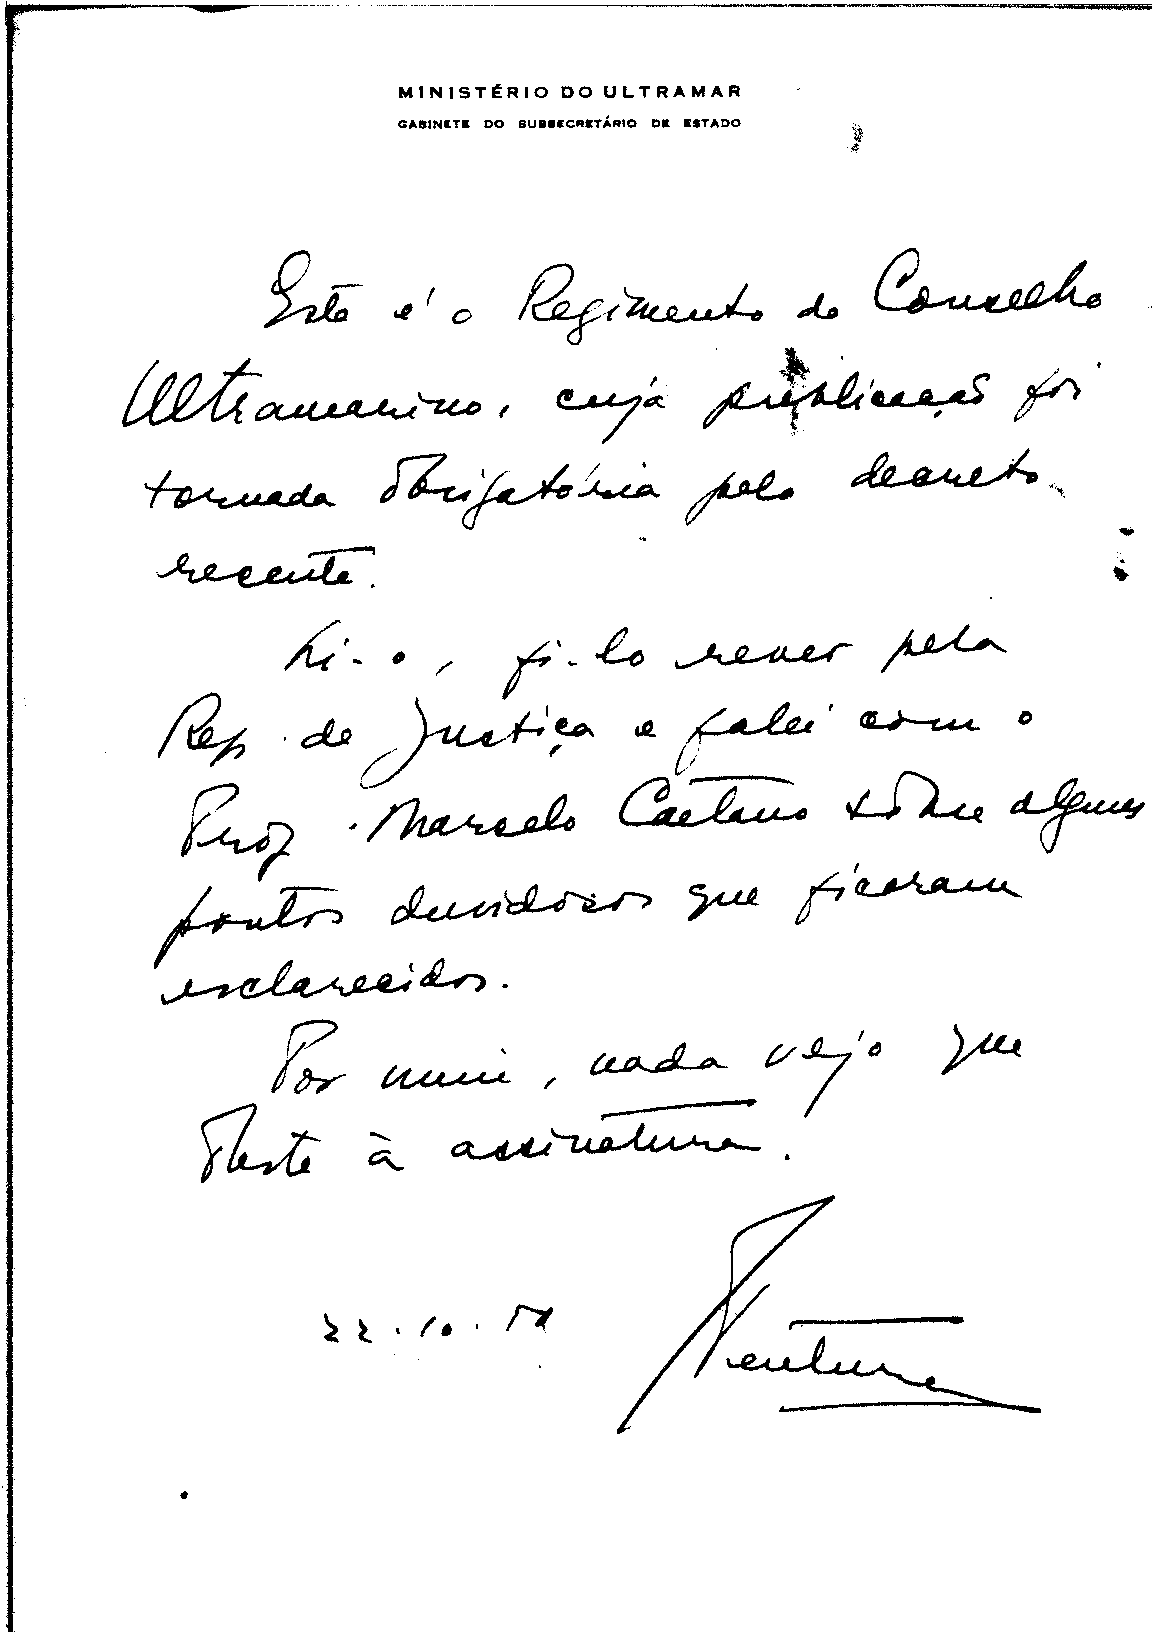 MINISTÉRIO DO ULTRAMAR
GABINETE DO SUBSECRETÁRIO DE ESTADO
Este é o Regimento do Conselho
Ultramarino, cuja publicação foi
tornada obrigatória pelo decreto
recente.
Li-o, fi-lo rever pela
Rep. de Justiça e falei com o
Prof. Marcelo Caetano sôbre alguns
pontos duvidosos que ficaram
esclarecidos.
Por mim, nada vejo que
obste à assinatura.
22.10.
Ventura